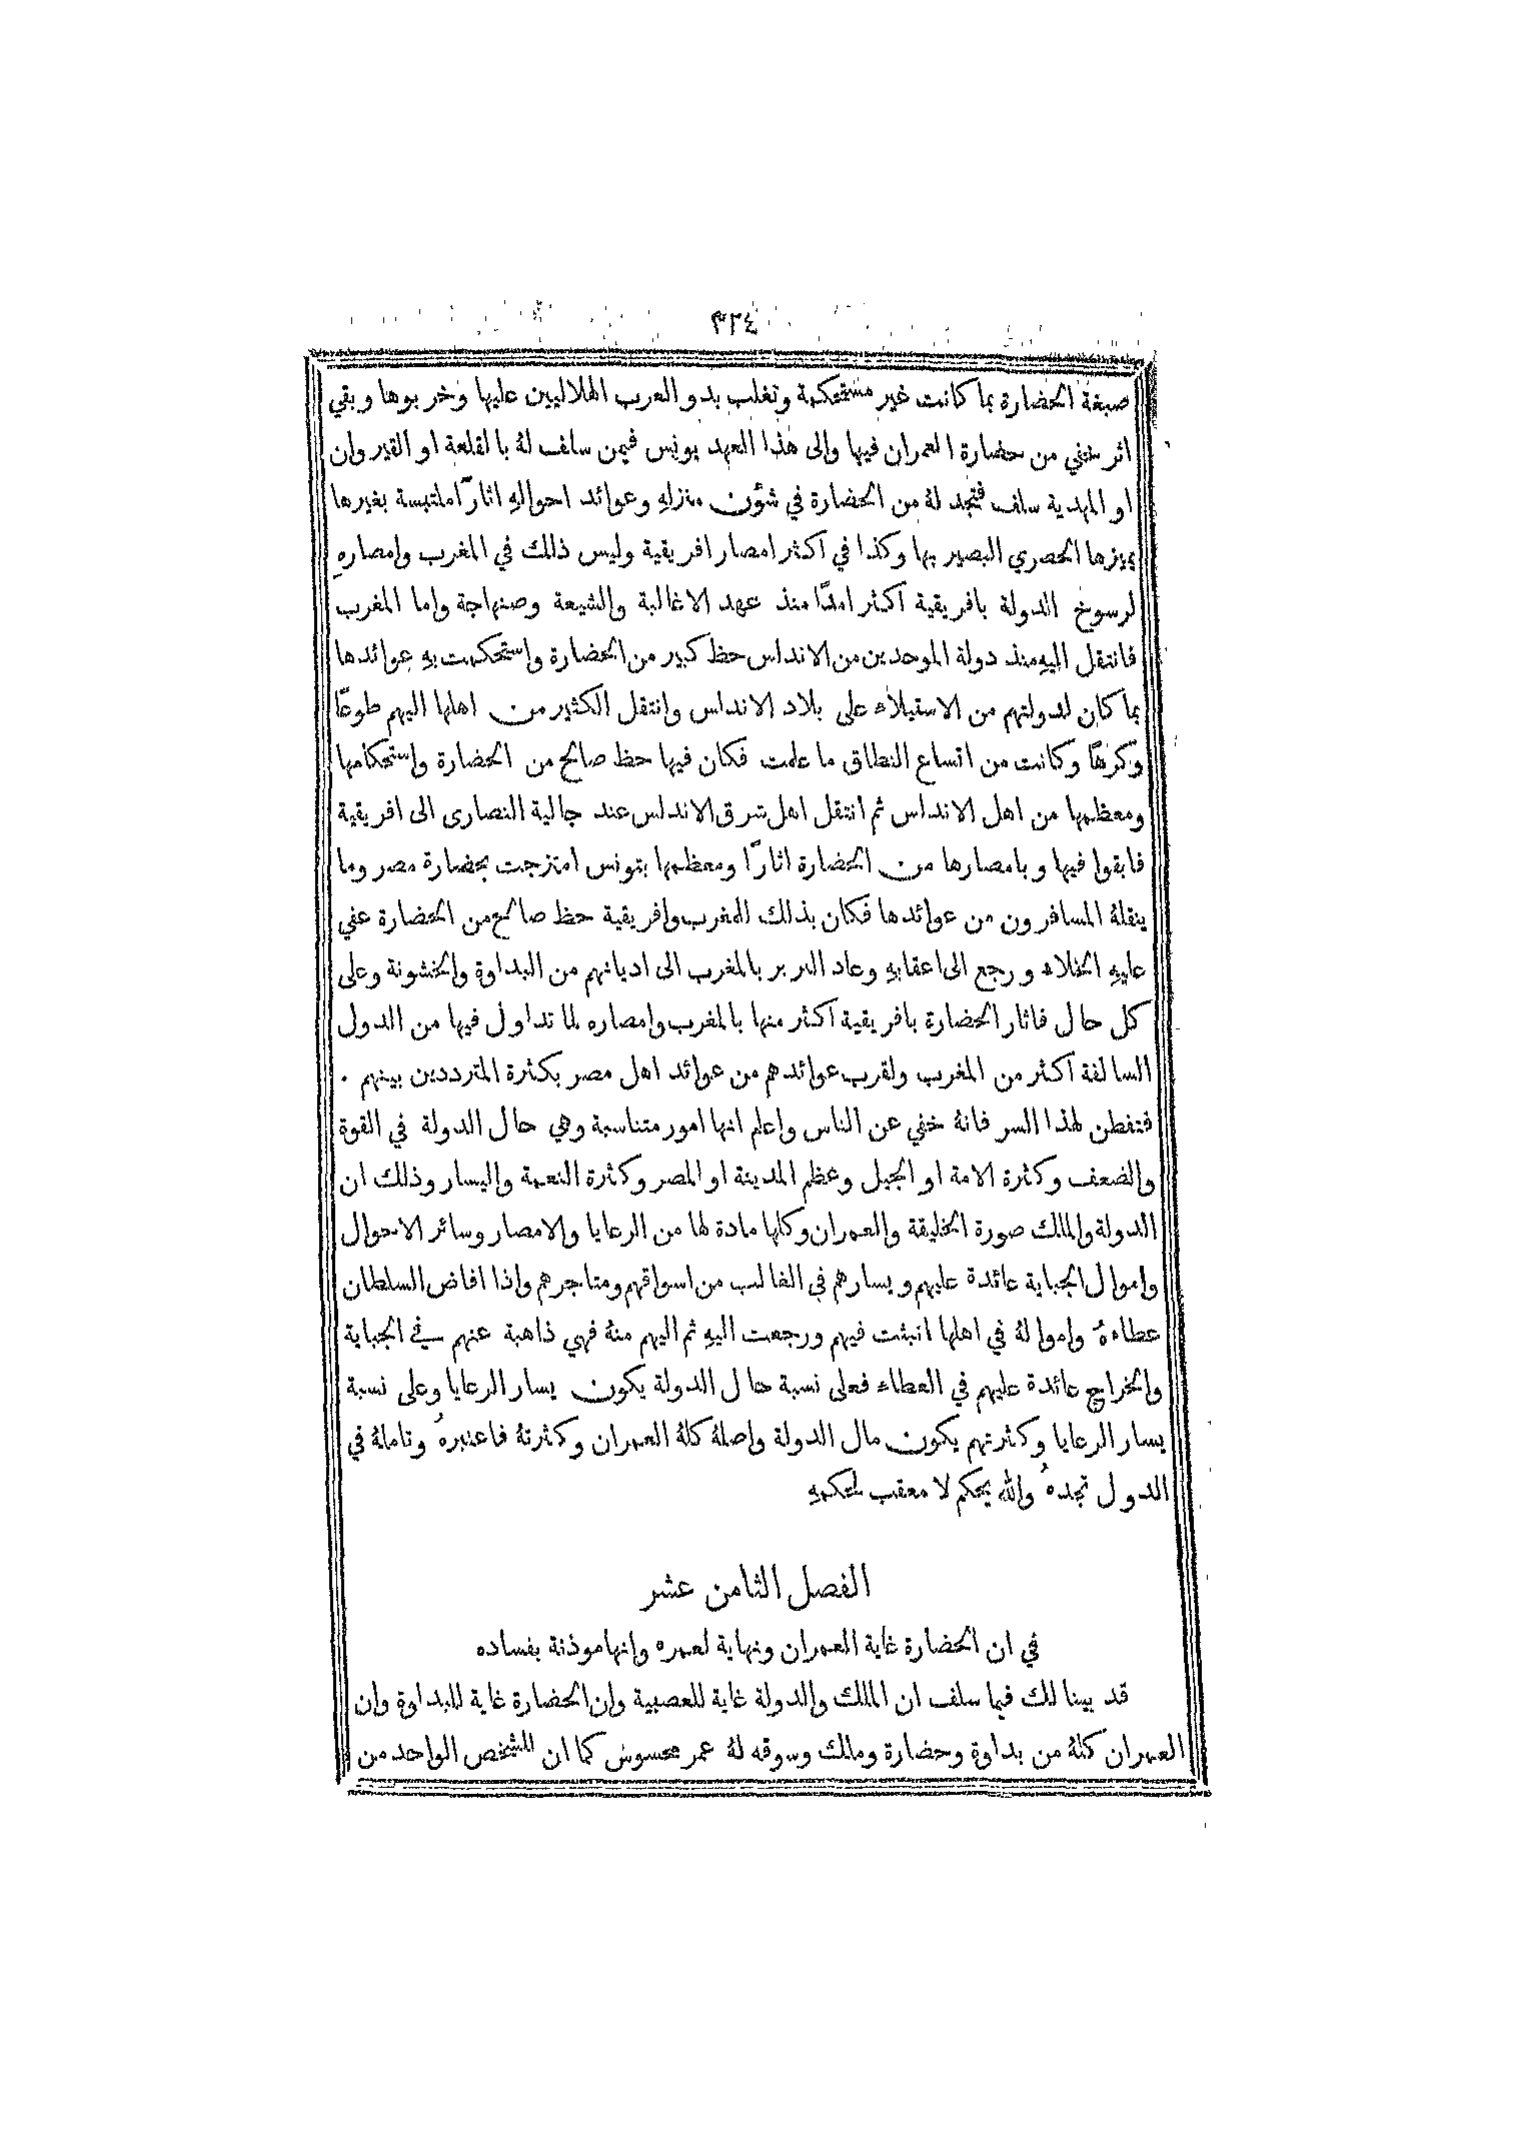 ٣٢٤
صبغة الحضارة بما كانت غير مستحكمة وتغلب بدو العرب الهلاليين عليها وخربوها وبقي
اثر خفي من حضارة العمران فيها والى هذا العهد يونس فيمن سلف لهُ بالقلعة او القيروان
او المهدية سلف فتجد لهُ من الحضارة في شؤن منزلهِ وعوائد احوالهِ اثارًا ملتبسة بغيرها
يميزها الحصري البصير بها وكذا في اكثر امصار افريقية وليس ذلك في المغرب وامصارهِ
لرسوخ الدولة بافريقية اكثر امدًا منذ عهد الاغالبة والشيعة وصنهاجة واما المغرب
فانتقل اليهِ منذ دولة الموحدين من الاندلس حظ كبير من الحضارة واستحكمت بهِ عوائدها
بما كان لدولتهم من الاستيلاء على بلاد الاندلس وانتقل الكثير من اهلها اليهم طوعًا
وكرهًا وكانت من اتساع النطاق ما علمت فكان فيها حظ صالح من الحضارة واستحكامها
ومعظمها من اهل الاندلس ثم انتقل اهل شرق الاندلس عند جالية النصارى الى افريقية
فابقوا فيها وبامصارها من الحضارة اثارًا ومعظمها بتونس امتزجت بحضارة مصر وما
ينقلهُ المسافرون من عوائدها فكان بذلك للمغرب وافريقية حظ صالح من الحضارة عفي
عليهِ الخلاء ورجع الى اعقابهِ وعاد البربر بالمغرب الى اديانهم من البداوة والخشونة وعلى
كل حال فاثار الحضارة بافريقية اكثر منها بالمغرب وامصاره لما تداول فيها من الدول
السالفة اكثر من المغرب ولقرب عوائدهم من عوائد اهل مصر بكثرة المترددين بينهم ٠
فتفطن لهذا السر فانهُ خفي عن الناس واعلم انها امور متناسبة وهي حال الدولة في القوة
والضعف وكثرة الامة او الجيل وعظم المدينة او المصر وكثرة النعمة واليسار وذلك ان
الدولة والملك صورة الخليقة والعمران وكلها مادة لها من الرعايا والامصار وسائر الاحوال
واموال الجباية عائدة عليهم ويسارهم في الغالب من اسواقهم ومتاجرهم واذا افاض السلطان
عطاءهُ وامواله في اهلها انبثت فيهم ورجعت اليهِ ثم اليهم منهُ فهي ذاهبة عنهم في الجباية
والخراج عائدة عليهم في العطاء فعلى نسبة حال الدولة يكون يسار الرعايا وعلى نسبة
يسار الرعايا وكثرتهم يكون مال الدولة واصلهُ كلهُ العمران وكثرتهُ فاعتبرهُ وتاملهُ في
الدول تجدهُ والله يحكم لا معقب لحكمهِ
الفصل الثامن عشر
في ان الحضارة غاية العمران ونهاية لعمره وانها موذنة بفساده
قد بينا لك فيما سلف ان الملك والدولة غاية للعصبية وان الحضارة غاية للبداوة وان
العمران كلهُ من بداوة وحضارة وملك وسوقه لهُ عمر محسوس كما ان للشخص الواحد من